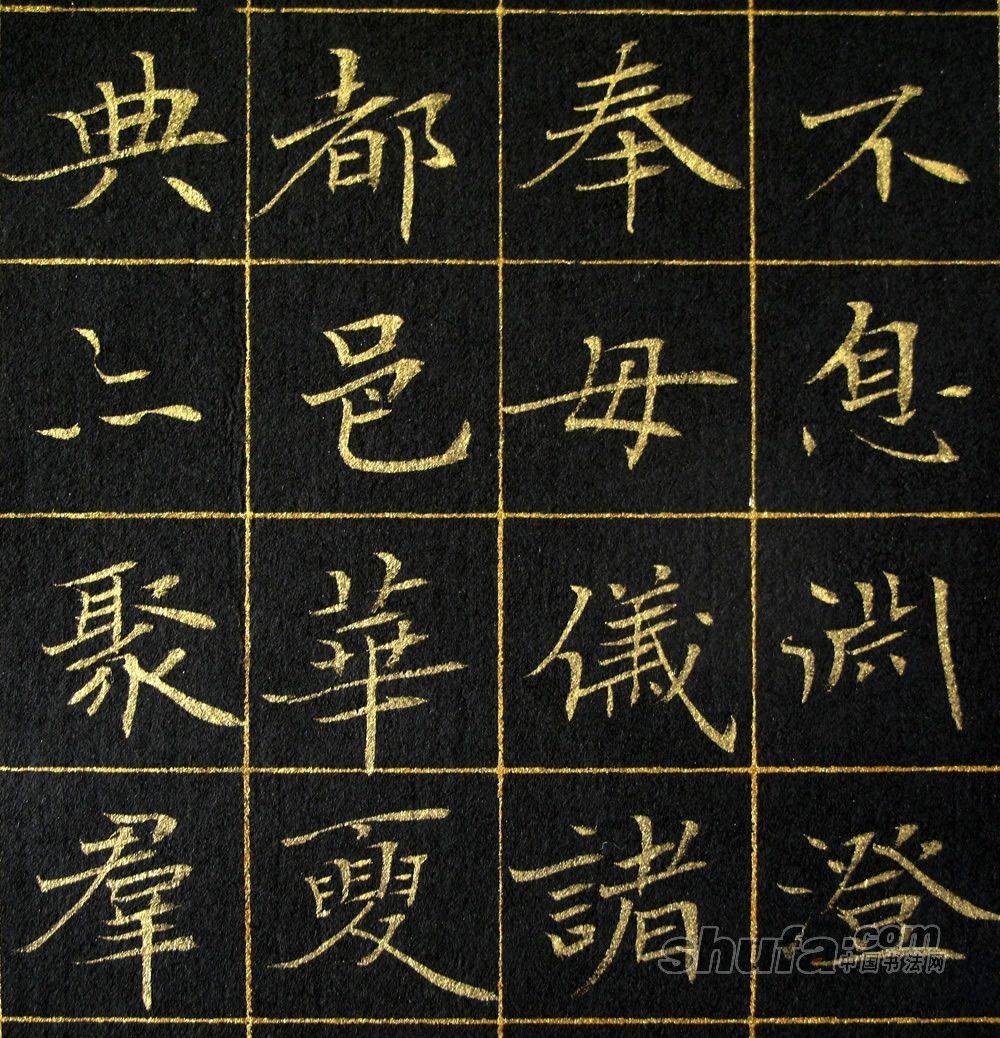 不息淵澄
奉母儀諸
都邑華夏
典亦聚羣
shufa.com
中国书法网